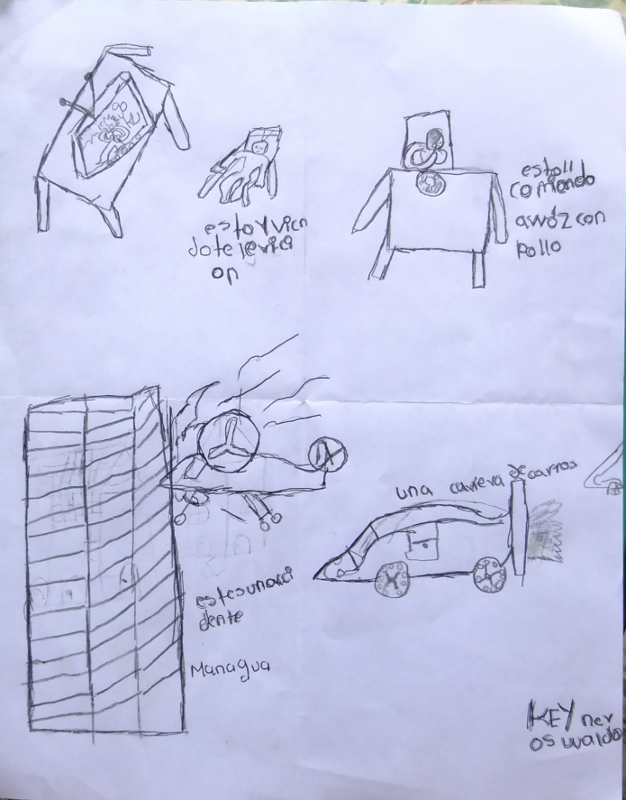 estoy vien
do televici
on
estoll
comiendo
awoz con
pollo
una carera de carros
estesunacci
dente
Managua
KEYner
oswaldo